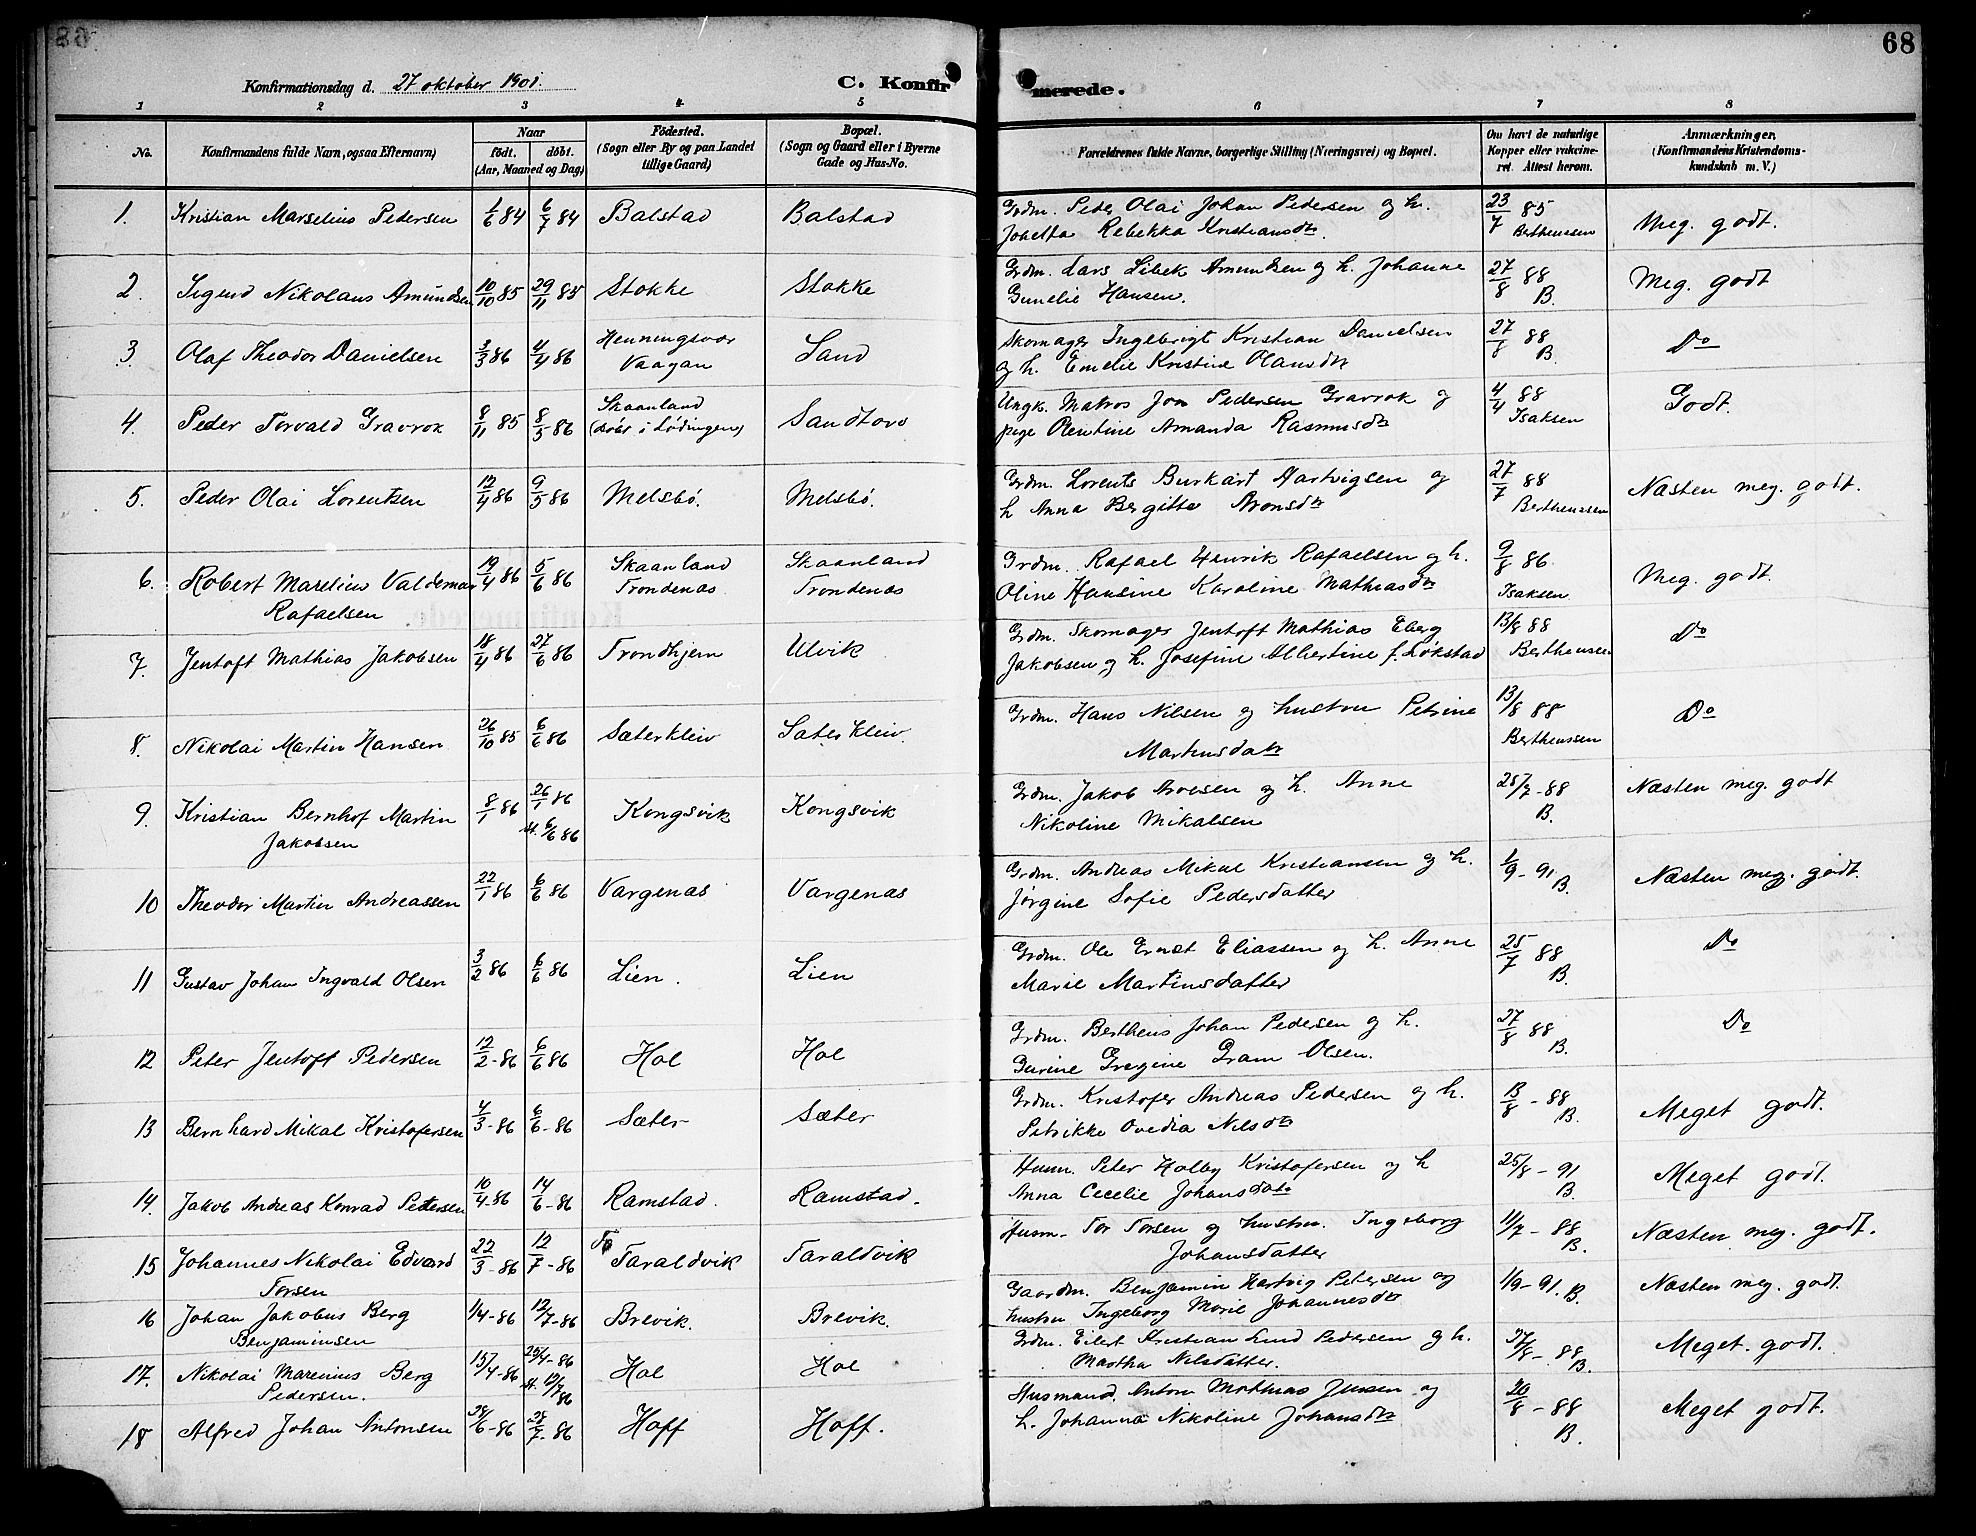 68
Konfirmationsdag d. 27 oktober 1901.
C. Konfirmerede.
1 2 3 4 5 6 7 8
No.
Konfirmandens fulde Navn, ogsaa Efternavn)
Naar
födt. döbt.
(Aar, Maaned og Dag)
Födested.
(Sogn eller By og paa Landet
tillige Gaard)
Bopæl.
(Sogn og Gaard eller i Byerne
Gade og Hus-No.
Forældrenes fulde Navne, borgerlige Stilling (Næringsvei) og Bopæl.
Om havt de naturlige
Kopper eller vakcine-
ret. Attest herom.
Anmærkninger,
(Konfirmandens Kristendoms-
kundskab m. V.)
1. Kristian Marselius Pedersen 1/6 84 6/7 84 Balstad Balstad Grdm. Peder Olai Johan Pedersen og h. 23/7 85 Meg. godt.
Rebekka Kristiansdtr. Bertheussen
2. Sigurd Nikolaus Amundsen 10/10 85 29/11 85 Stokke Stokke Grdm. Lars Libek Amundsen og h. Johanne 27/8 88 Meg. godt
Gunelie Hansen. B.
3. Olaf Theodor Danielsen 3/3 86 4/4 86 Henningsvær Sand Skomager Ingebrigt Kristian Danielsen 27/8 88 Do
Vaagan og h. Emelie Kristine Olausdtr B.
4. Peder Torvald Gravrok 8/11 85 8/5 86 Skaanland Sandtorv Ungk. Matros Jon Pedersen Gravrok og 4/4 88 Godt.
(döbt i Lödingen) pige Olentine Amanda Rasmusdtr Isaksen
5. Peder Olai Lorentsen 12/4 86 9/5 86 Melsbö. Melsbö. Grdm. Lorents Burkart Hartvigsen og 27/7 88 Næsten meg. godt.
h Anna Bergitte Aronsdtr Bertheussen
6. Robert Marelius Valdemar 19/4 86 5/6 86 Skaanland Skaanland Grdm. Rafael Henrik Rafaelsen og h. 9/8 86. Meg. godt.
Rafaelsen Trondenæs Trondenæs Oline Hansine Karoline Mathiasdtr Isaksen
7. Jentoft Mathias Jakobsen 18/4 86 27/6 86 Trondhjem Ulvik Grdm. Skomager Jentoft Mathias Eberg 13/8 88 Do
Jakobsen og h. Josefine Albertine f. Lökstad Bertheussen
8. Nikolai Martin Hansen 26/10 85 6/6 86 Sæterkleiv Sæterkleiv. Grdm. Hans Nilsen og hustru Petrine 13/8 88 Do
Martinsdatr Bertheussen
9. Kristian Bernhof Martin 8/1 86 26/1 86 Kongsvik Kongsvik Grdm. Jakob Aroesen og h. Anne 25/7-88 Næsten meg. godt
Jakobsen st. 6/6 86 Nikoline Mikalsen B.
10 Theodor Martin Andreassen 22/1 86 6/6 86 Vargenæs Vargenæs Grdm. Andreas Mikal Kristiansen og h. 1/9-91 Næsten meg. godt.
Jørgine Sofie Pedersdatter B.
11 Gustav Johan Ingvald Olsen 3/2 86 6/6 86 Lien. Lien Grdm. Ole Ernst Eliassen og h. Anne 25/7 88 Do
Marie Martinsdatter B.
12 Peter Jentoft Pedersen 12/2-86 6/6 86 Hol Hol Grdm. Bertheus Johan Pedersen og h. 27/8 88 Do
Gurine Gregine Gram Olsen. B.
13 Bernhard Mikal Kristofersen 4/3-86 6/6-86 Sæter Sæter Grdm. Kristofer Andreas Pedersen og h. 13/8-88 Meget godt.
Petrikke Ovedia Nilsdtr B.
14. Jakob Andreas Konrad Pedersen 10/4-86 14/6-86 Ramstad. Ramstad. Husm. Peter Holby Kristofersen og h 25/8-91 Meget godt.
Anna Cecelie Johansdatr B.
15 Johannes Nikolai Edvard 22/3-86 12/7-86 Taraldvik Taraldvik Husm. Tor Torsen og hustru. Ingeborg 11/7-88 Næsten meg. godt.
Torsen Johansdatter B.
16 Johan Jakobus Berg 1/4-86 12/7-86 Brevik. Brevik. Gaardm. Benjamin Hartvig Petersen og 1/9-91. B. Næsten meg. godt.
Benjaminsen hustru Ingeborg Marie Johannesdtr
17. Nikolai Marenius Berg 15/4-86 25/4-86 Hol Hol Grdm. Eilert Kristian Lund Pedersen og h. 27/8-88 Meget. godt.
Pedersen. st. 12/7 86 Martha Nilsdatter. B.
18 Alfred Johan Antonsen 28/6-86 28/7-86 Hoff Hoff. Husmand. Anton Mathias Jensen og 20/8-88 Meget godt.
h. Johanna Nikoline Johansdtr B.